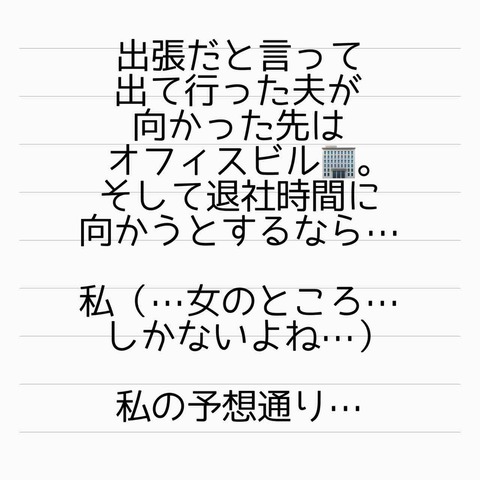 出張だと言って
出て行った夫が
向かった先は
オフィスビル🏢。
そして退社時間に
向かうとするなら…
私（…女のところ…
しかないよね…）
私の予想通り…